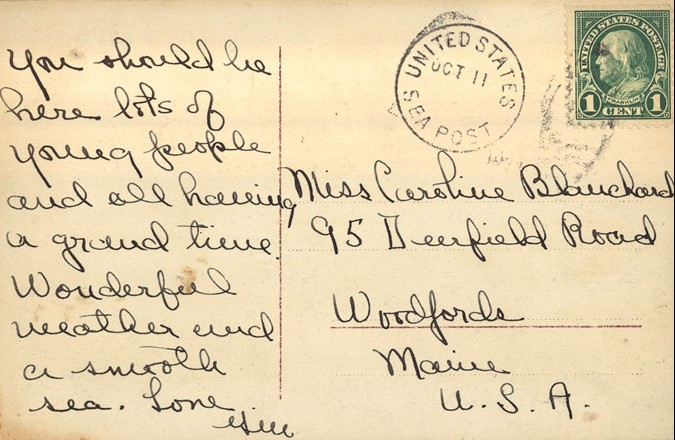 You should be
here lots of
young people
and all having
a grand time.
Wonderful
weather and
a smooth
sea. Love
UNITED STATES
OCT 11
SEA POST
UNITED STATES POSTAGE
FRANKLIN
1 CENT 1
Miss Caroline Blanchard
95 Deerfield Road
Woodfords
Maine
U.S.A.